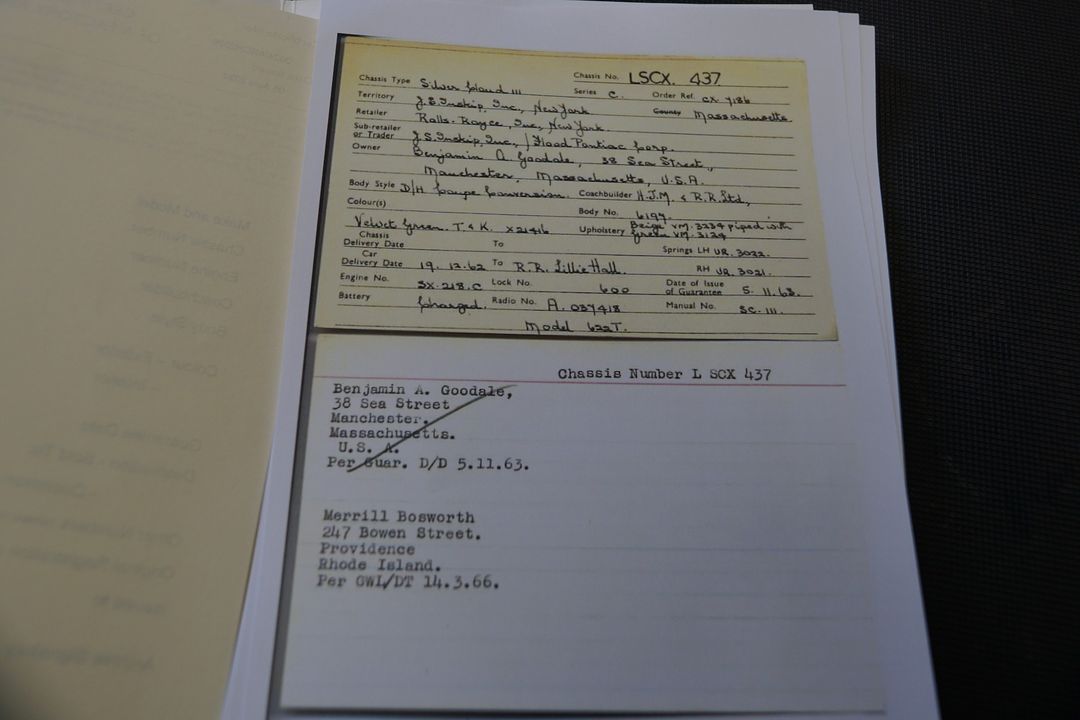 Chassis Type Silver Cloud III Chassis No. LSCX. 437
Series C. Order Ref. CX. 7186
Territory J.S. Inskip, Inc., New York County Massachusetts.
Retailer Rolls-Royce, Inc, New York.
Sub-retailer or Trader J.S. Inskip, Inc., / Flood Pontiac Corp.
Owner Benjamin A. Goodale, 38 Sea Street,
Manchester, Massachusetts, U.S.A.
Body Style D/H Coupe Conversion. Coachbuilder H.J.M. & R.R. Ltd,
Colour(s) Body No. 6197.
Velvet Green. T & K. X21416 Upholstery Beige VM. 3234 piped with
Green VM. 3124
Chassis Delivery Date To Springs LH UR. 3022.
Car Delivery Date 19. 12. 62 To R.R. Lillie Hall. RH UR. 3021.
Engine No. SX. 218. C Lock No. 600 Date of Issue of Guarantee 5. 11. 63.
Battery Charged. Radio No. A. 037418 Manual No. SC. III.
Model 622T.
Chassis Number L SCX 437
Benjamin A. Goodale,
38 Sea Street
Manchester.
Massachusetts.
U.S. A.
Per Guar. D/D 5.11.63.
Merrill Bosworth
247 Bowen Street.
Providence
Rhode Island.
Per GWL/DT 14.3.66.